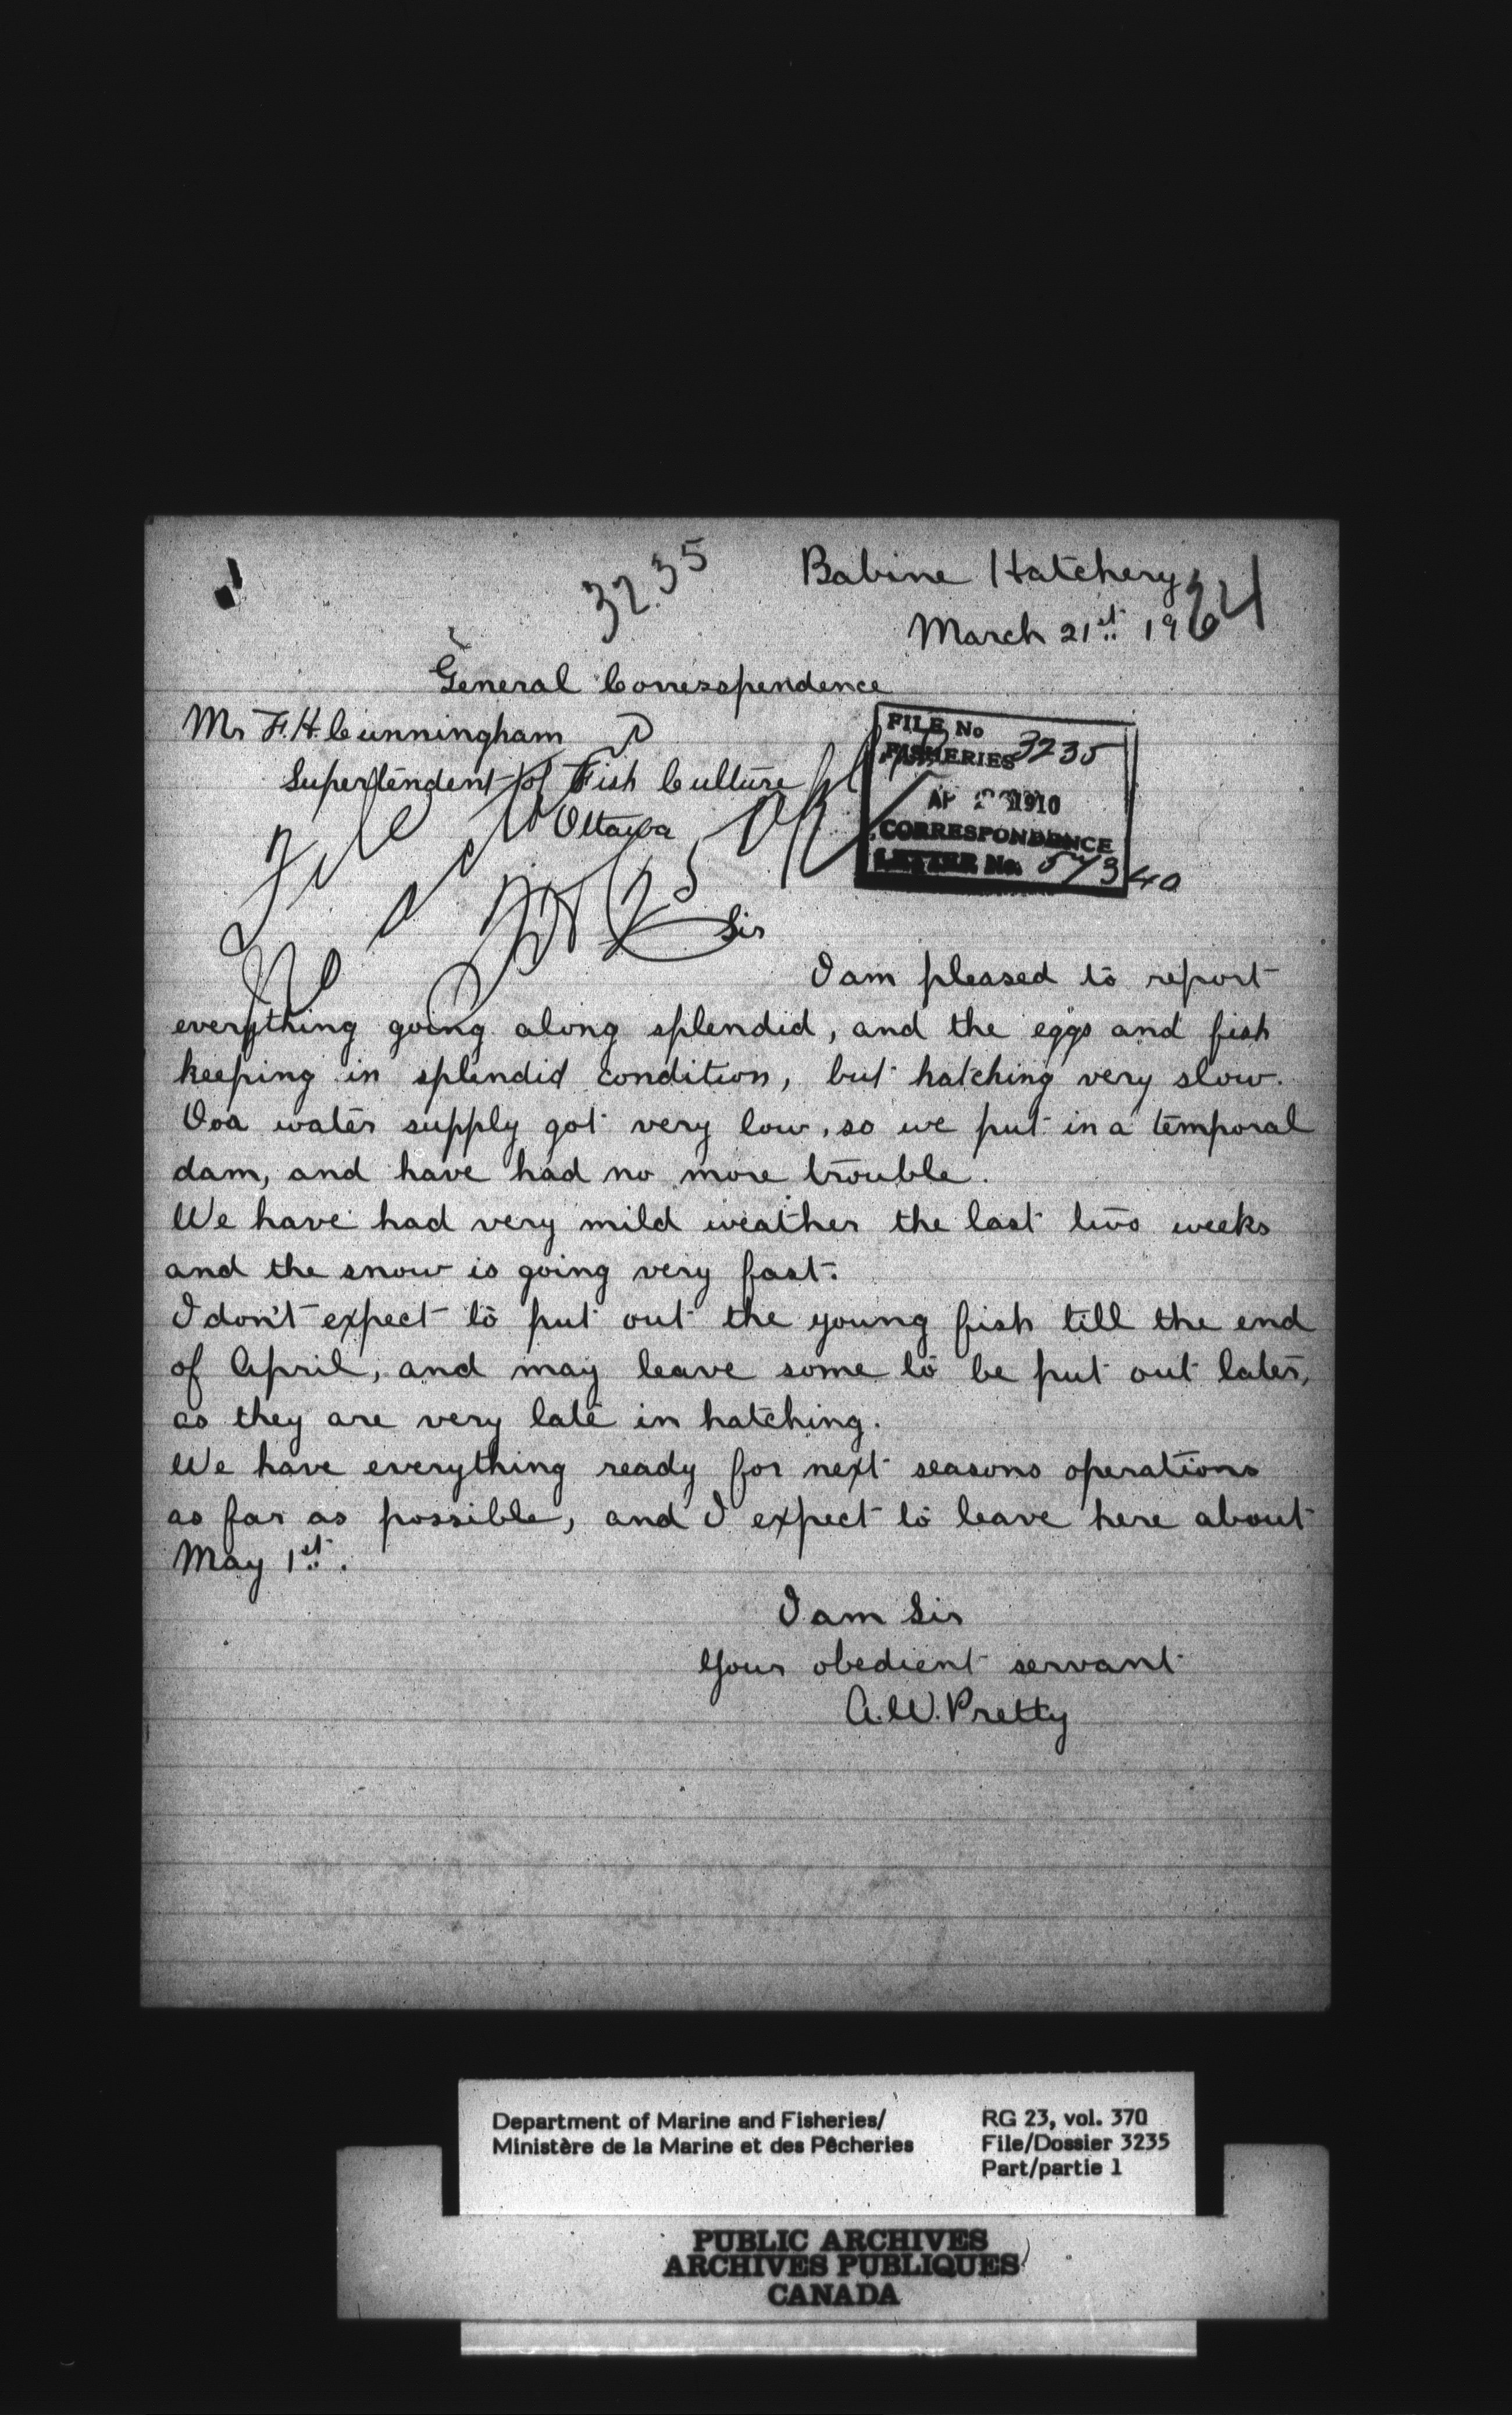 3235
Babine Hatchery
March 21st 19
General Corresspendence
Mr F.H. Cunningham
Supertendent of Fish Culture
Ottawa
FILE No
FISHERIES 3235
1910
CORRESPONDENCE
LETTER No.
Sir
I am pleased to report
everything going along splendid, and the eggs and fish
keeping in splendid condition, but hatching very slow.
water supply got very low, so we put in a temporal
dam, and have had no more trouble.
We have had very mild weather the last two weeks
and the snow is going very fast.
I don't expect to put out the young fish till the end
of April, and may leave some to be put out later,
as they are very late in hatching.
We have everything ready for next seasons operations
as far as possible, and I expect to leave here about
May 1st.
I am Sir
Your obedient servant
A.W. Pretty
Department of Marine and Fisheries/
Ministère de la Marine et des Pêcheries
RG 23, vol. 370
File/Dossier 3235
Part/partie 1
PUBLIC ARCHIVES
ARCHIVES PUBLIQUES
CANADA